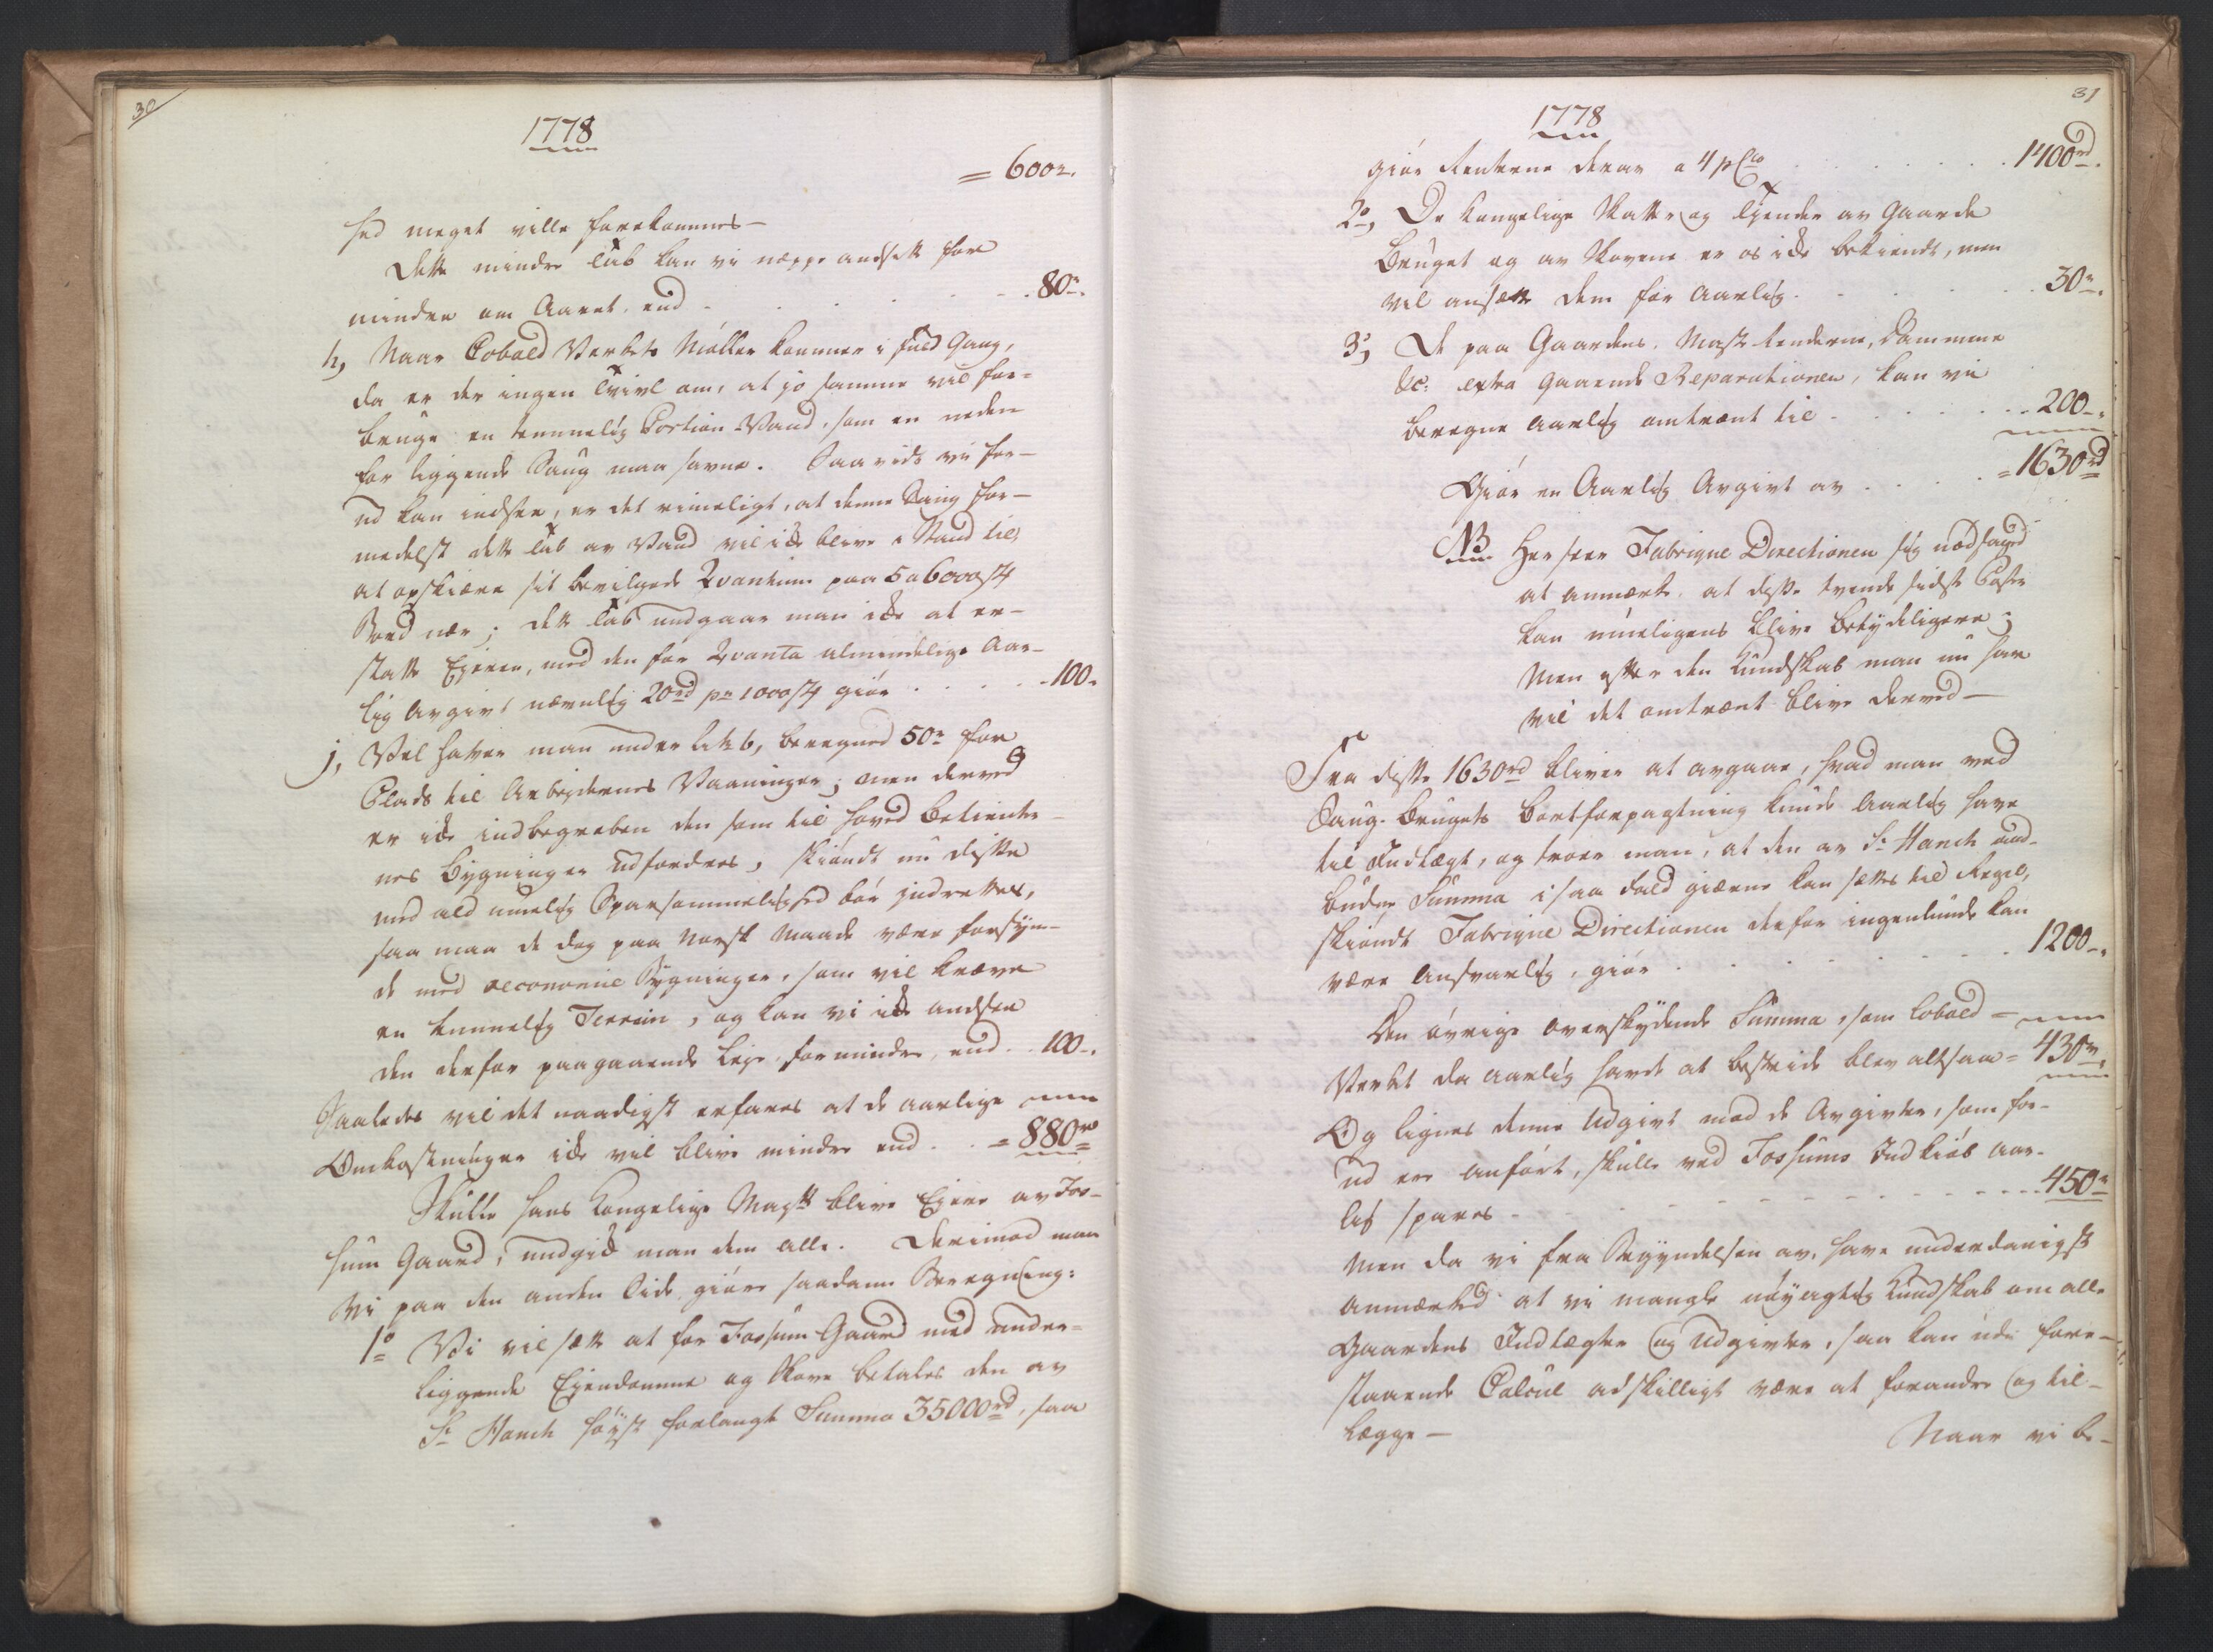 30
1778
= 600 r.
hed meget ville forekommes —
Dette mindre Tab kan vi neppe andsætte for
mindre om Aaret, end - - - - - 80 r.
h, Naar Cobold Verkets Møller kommer i fuld Gang,
da er der ingen Tvivl om, at jo samme vil for-
bruge en temmelig Portion Vand, som en neden
for liggende Saug maa savne. Saavidt vi for-
ud kan indsee, er det rimeligt, at denne Saug for-
medelst dette Tab av Vand vil ikke blive i Stand til,
at opskiære sit bevilgede Qvantum paa 5 a 6000 st
Bord nær; dette Tab undgaar man ikke at er-
statte Ejeren, med den for Qvanta almindelige Aar-
lig Avgivt nævnlig 20 rd pr 1000 st giør . . . . . 100 -
j, Vel haver man under Litr b, beregned 50 r for
Plads til Arbejdernes Vaaninger; men derved
er ikke indbegreben den som til hoved Betienter-
nes Bygninger udfordres, skiøndt nu disse
med ald muelig Sparsommelighed bør indrettes,
saa maa de dog paa Norsk Maade være forsyne-
de med oeconomie Bygninger, som vil kræve
en temmelig Terrein, og kan vi ikke andsee
den derfor paagaaende Leje for mindre, end . . 100 -.
Saaledes vil det naadigst erfares at de aarlige
Omkostninger ikke vil blive mindre end . . = 880 rd
Skulle Hans Kongelige Maystt blive Ejere av Fos-
sum Gaard, undgik man dem alle. Derimod maa
vi paa den anden Side giøre saadan Beregning:
1o Vi vil sætte at for Fossum Gaard med under-
liggende Ejendomme og Skove betales den av
Sr Hanch høyst forlangte Summa 35000 rd, saa
31
1778
giør Renterne derav a 4 pCto . . . . . . . 1400 rd.
2o, De kongelige Skatter og Tiender av Gaarde
Bruget og av Skovene er os ikke bekiendt, men
vil ansætte dem for Aarlig . . . . . . 30 r.
3o, De paa Gaardens, Mast Renderne, Dammene
&c: extra gaaende Reparationer, kan vi
beregne Aarlig omtrænt til - - - - - - 200 -.
Giør en Aarlig Avgivt av . . . . = 1630 rd
NB Her seer Fabrique Directionen sig nødsaged
at anmærke, at disse tvende sidste Poster
kan mueligens blive betydeligere;
Men efter den Kundskab man nu har
vil det omtrænt blive derved —
Fra disse 1630 rd bliver at avgaae, hvad man ved
Saug-Brugets Bortforpagtning kunde Aarlig have
til Indtægt, og troer man, at den av Sr Hanch aud-
buden Summa i saa Fald gierne kan sættes til Regel,
skiøndt Fabrique Directionen derfor ingenlunde kan
være Ansvarlig, giør . . . . . . . . 1200 -.
Den øvrige overskydende Summa, som Cobold =
Verket da aarlig havde at bestride blev altsaa = 430 r.
Og lignes denne Udgivt mod de Avgivter, som for-
ud ere anført, skulle ved Fossums Indkiøb aar-
lig spares - - - - - - - - - - 450 r
Men da vi fra Begyndelsen av, have underdanigst
anmærked at vi mangle nøyagtig Kundskab om alle
Gaardens Indtægter og Udgivter, saa kan udi fore-
staaende Calcul adskilligt være at forandre og til-
lægge —
Naar vi be-